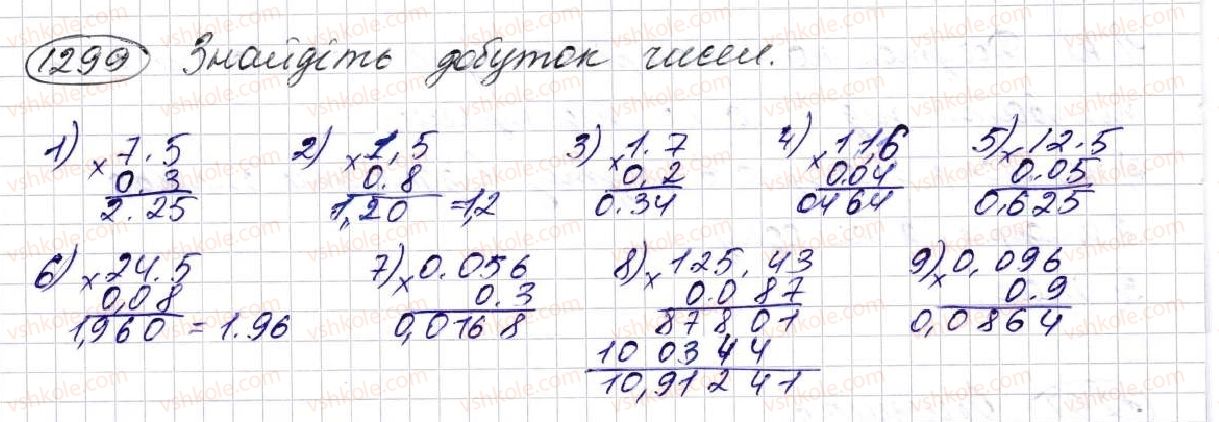 1299 Знайдіть добуток чисел.
1) 2) 3) 4) 5)
7.5 1,5 1.7 11,6 12.5
× 0.3 × 0.8 × 0,2 × 0.04 × 0.05
2.25 1,20 =1,2 0.34 0464 0.625
6) 7) 8) 9)
24.5 0.056 125,43 0,096
× 0,08 × 0.3 × 0.087 × 0.9
1,960 = 1.96 0,0168 87801 0,0864
100344
10,91241